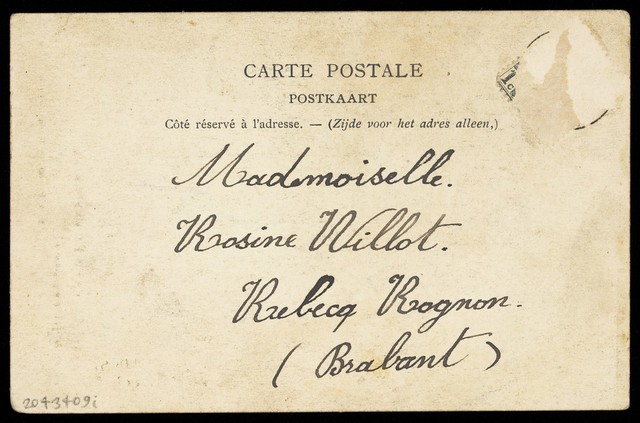 CARTE POSTALE
POSTKAART
Côté réservé à l'adresse. — (Zijde voor het adres alleen,)
1c
Mademoiselle.
Rosine Willot.
Rebecq Rognon.
(Brabant)
2043409i